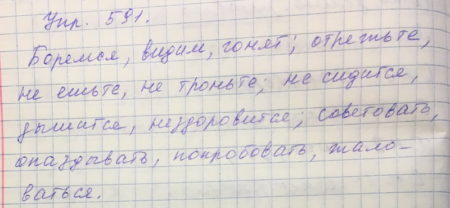 Упр. 591.
Боремся, видим, гонят; отрежьте,
не ешьте, не троньте; не сидится,
дышится, нездоровится; советовать,
опаздывать, попробовать, жало-
ваться.